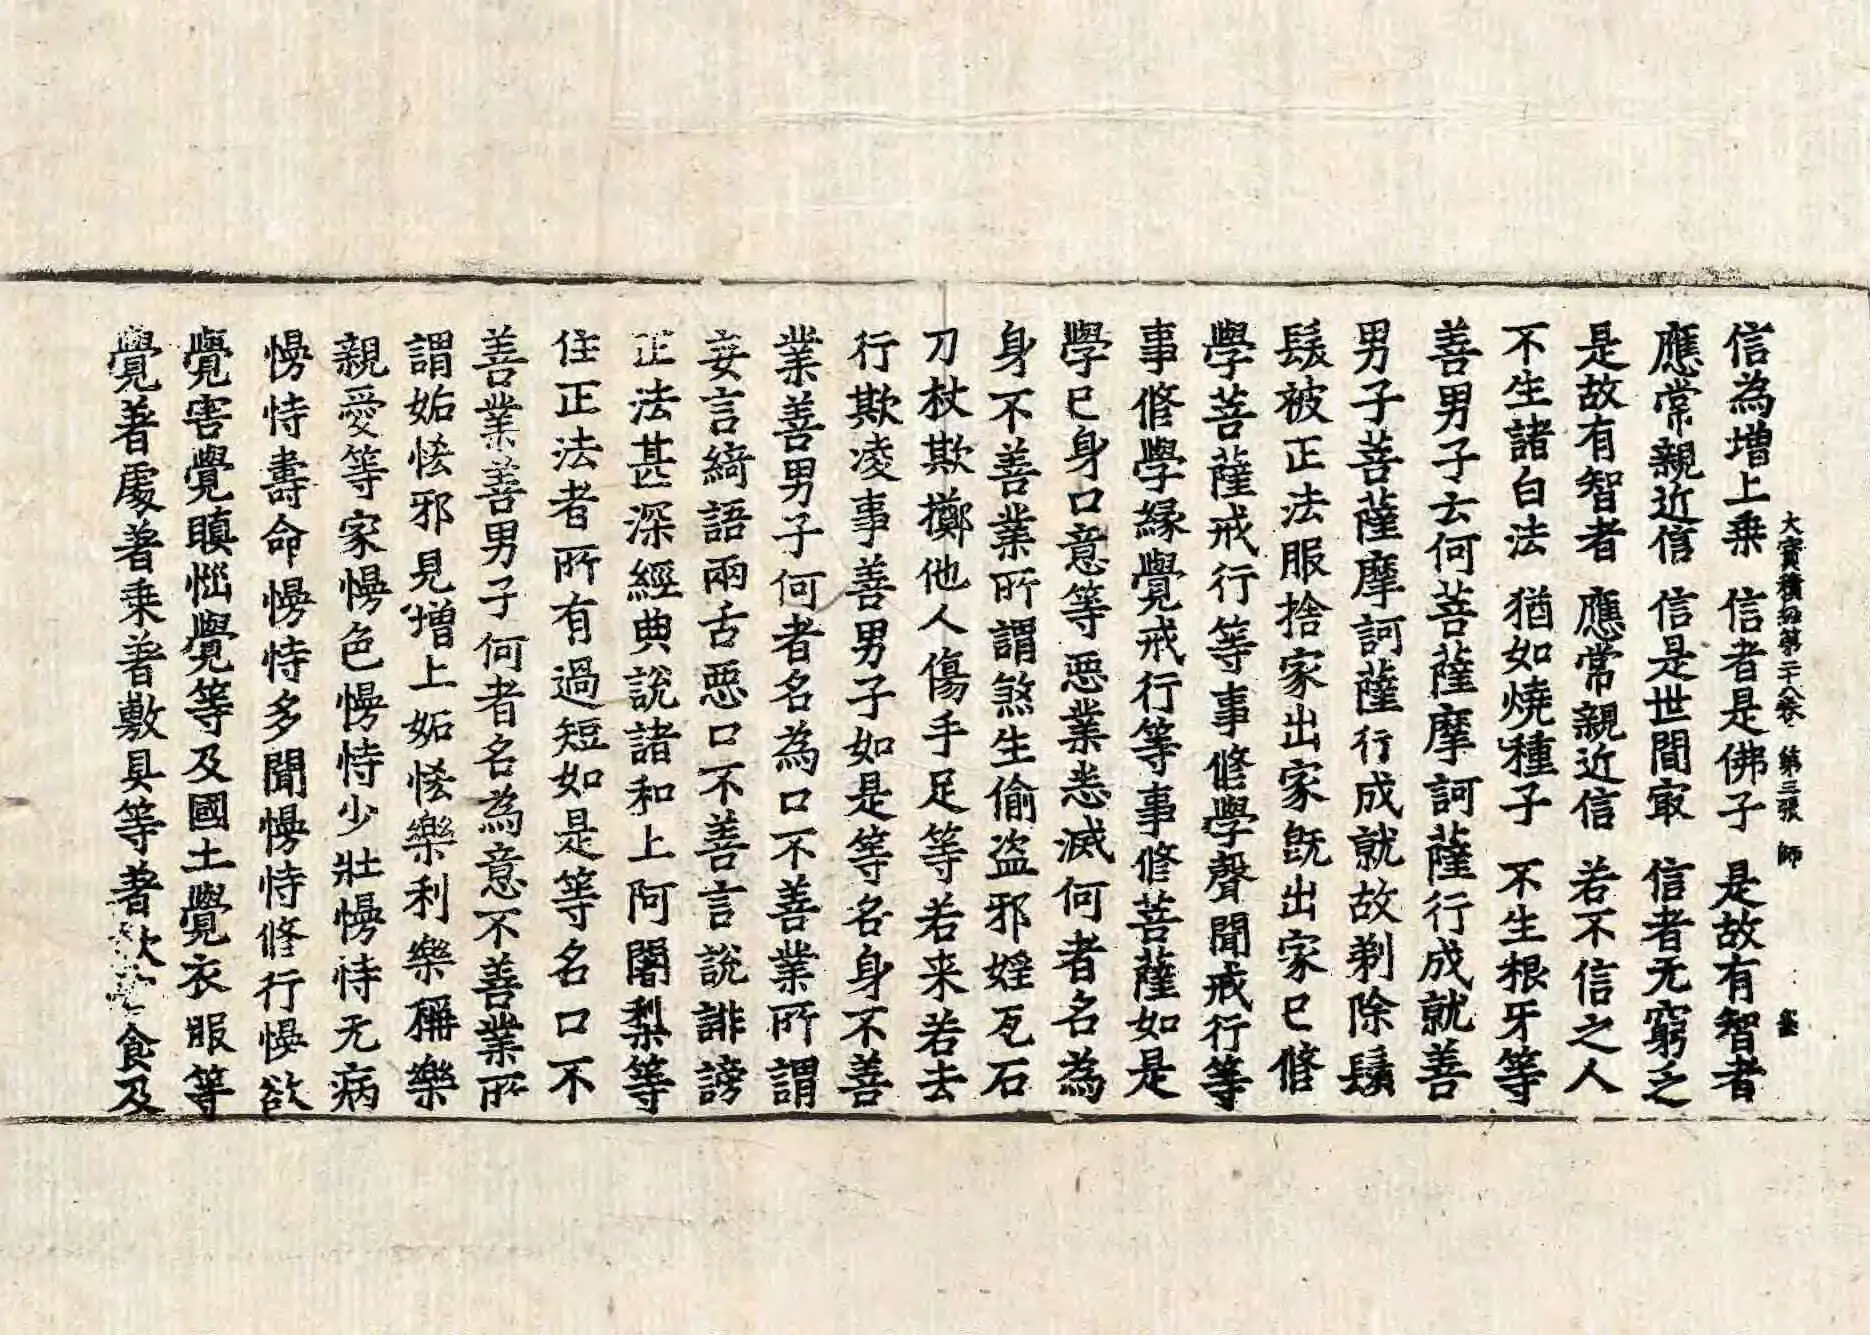 大寶積經第二十八卷 第三張 師
信為增上乗 信者是佛子 是故有智者
應常親近信 信是世間㝡 信者无窮乏
是故有智者 應常親近信 若不信之人
不生諸白法 猶如燒種子 不生根牙等
善男子云何菩薩摩訶薩行成就善
男子菩薩摩訶薩行成就故剃除鬚
髮被正法服捨家出家旣出家已修
學菩薩戒行等事修學聲聞戒行等
事修學縁覺戒行等事修菩薩如是
學已身口意等惡業悉滅何者名為
身不善業所謂煞生偷盜邪婬瓦石
刀杖欺擲他人傷手足等若来若去
行欺凌事善男子如是等名身不善
業善男子何者名為口不善業所謂
妄言綺語兩舌惡口不善言說誹謗
正法甚深經典說諸和上阿闍梨等
住正法者所有過短如是等名口不
善業善男子何者名為意不善業所
謂妬恡邪見增上妬恡樂利樂稱樂
親愛等家慢色慢恃少壯慢恃无病
慢恃壽命慢恃多聞慢恃修行慢欲
覺害覺瞋惱覺等及國土覺衣服等
覺著處著乗著敷具等著食及